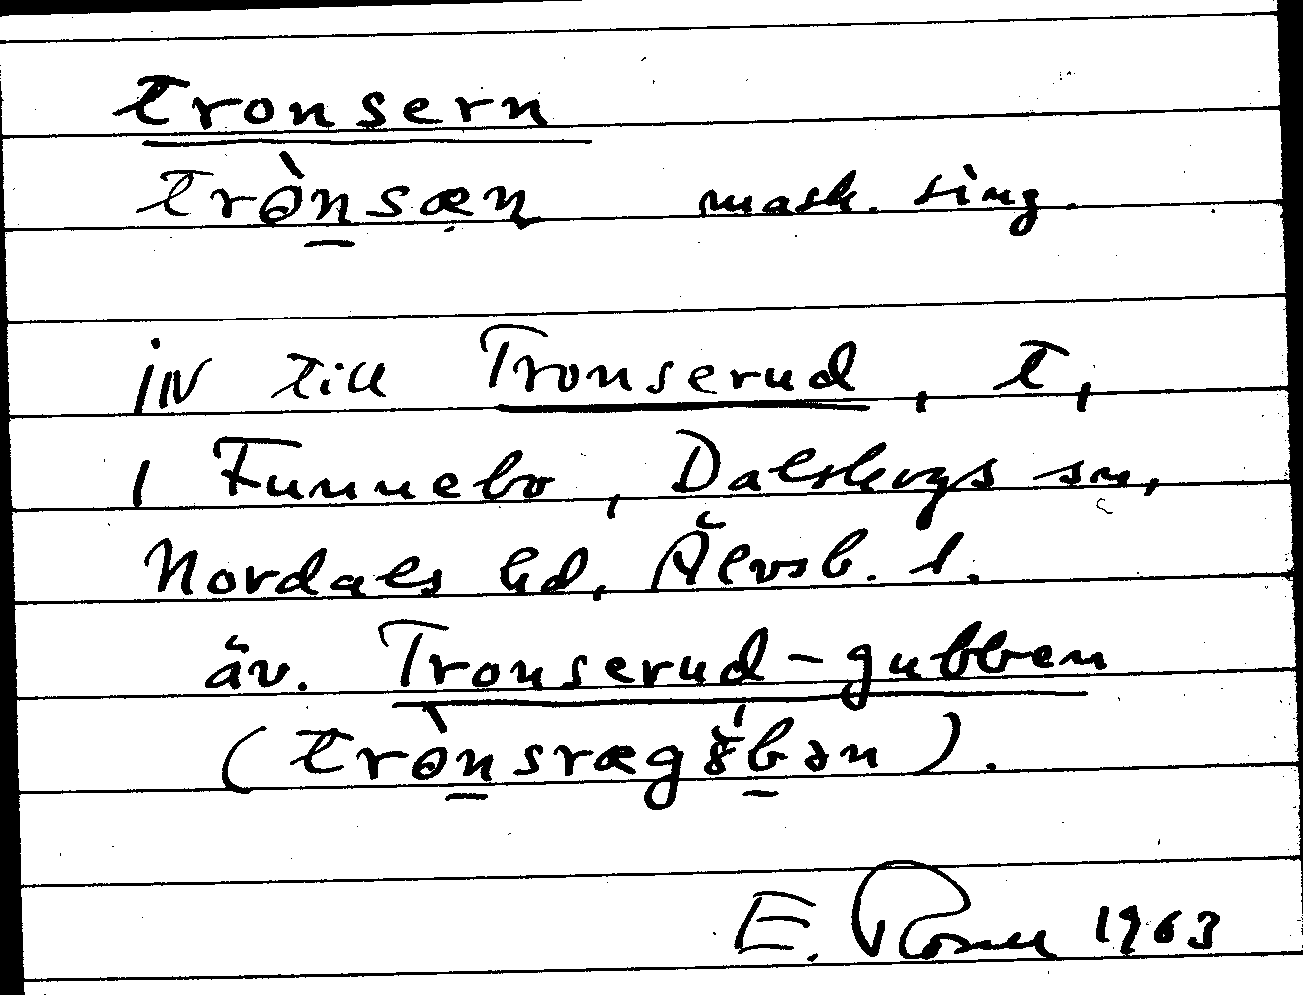 tronsern
trɵ̀n̲sæn̥ mask. sing.
inv till Tronserud, t,
i Funnebo, Dalskogs sn,
Nordals hd, Älvsb. l.
äv. Tronserud-gubben
(trɵ̀n̲srægɤ̆́b̲ən).
E. 1963